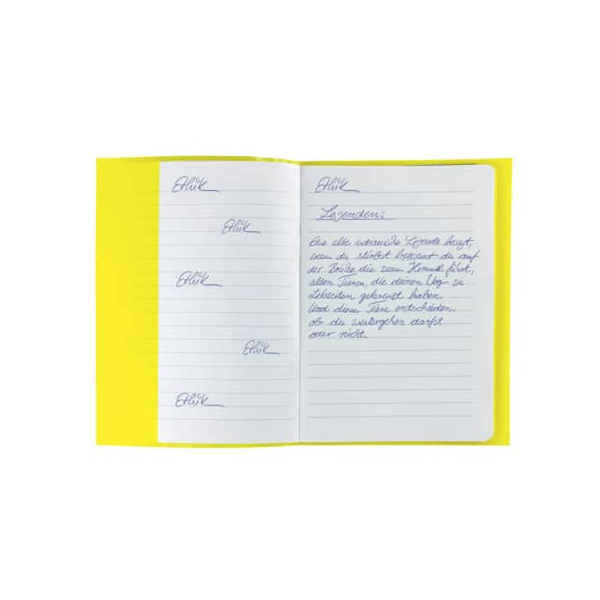 Ethik
Ethik
Ethik
Ethik
Ethik
Ethik
Legenden:
Eine alte indianische Legende besagt,
wenn du stirbst begegnest du auf
der Brücke die zum Himmel führt,
allen Tieren, die deinen Weg zu
Lebzeiten gekreuzt haben.
Und diese Tiere entscheiden,
ob du weitergehen darfst
oder nicht.